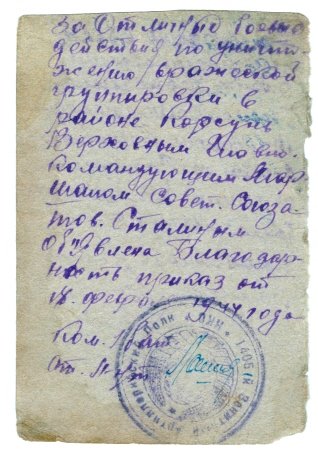 За Отличные боевые
действия по уничто
жению вражеской
группировки в
районе Корсунь
Верховным Главно.
командующим Мар
шалом Совет. Союза
тов. Сталиным
объявлена Благодар
ность приказ от
18. февр. 1944 года
Ком.
Ст.